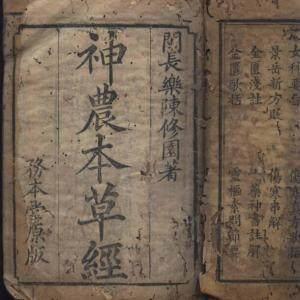 景岳新方砭
傷寒串解
金匱淺註
神書註解
金匱歌括
閩長樂陳修園著
神農本草經
務本堂原版